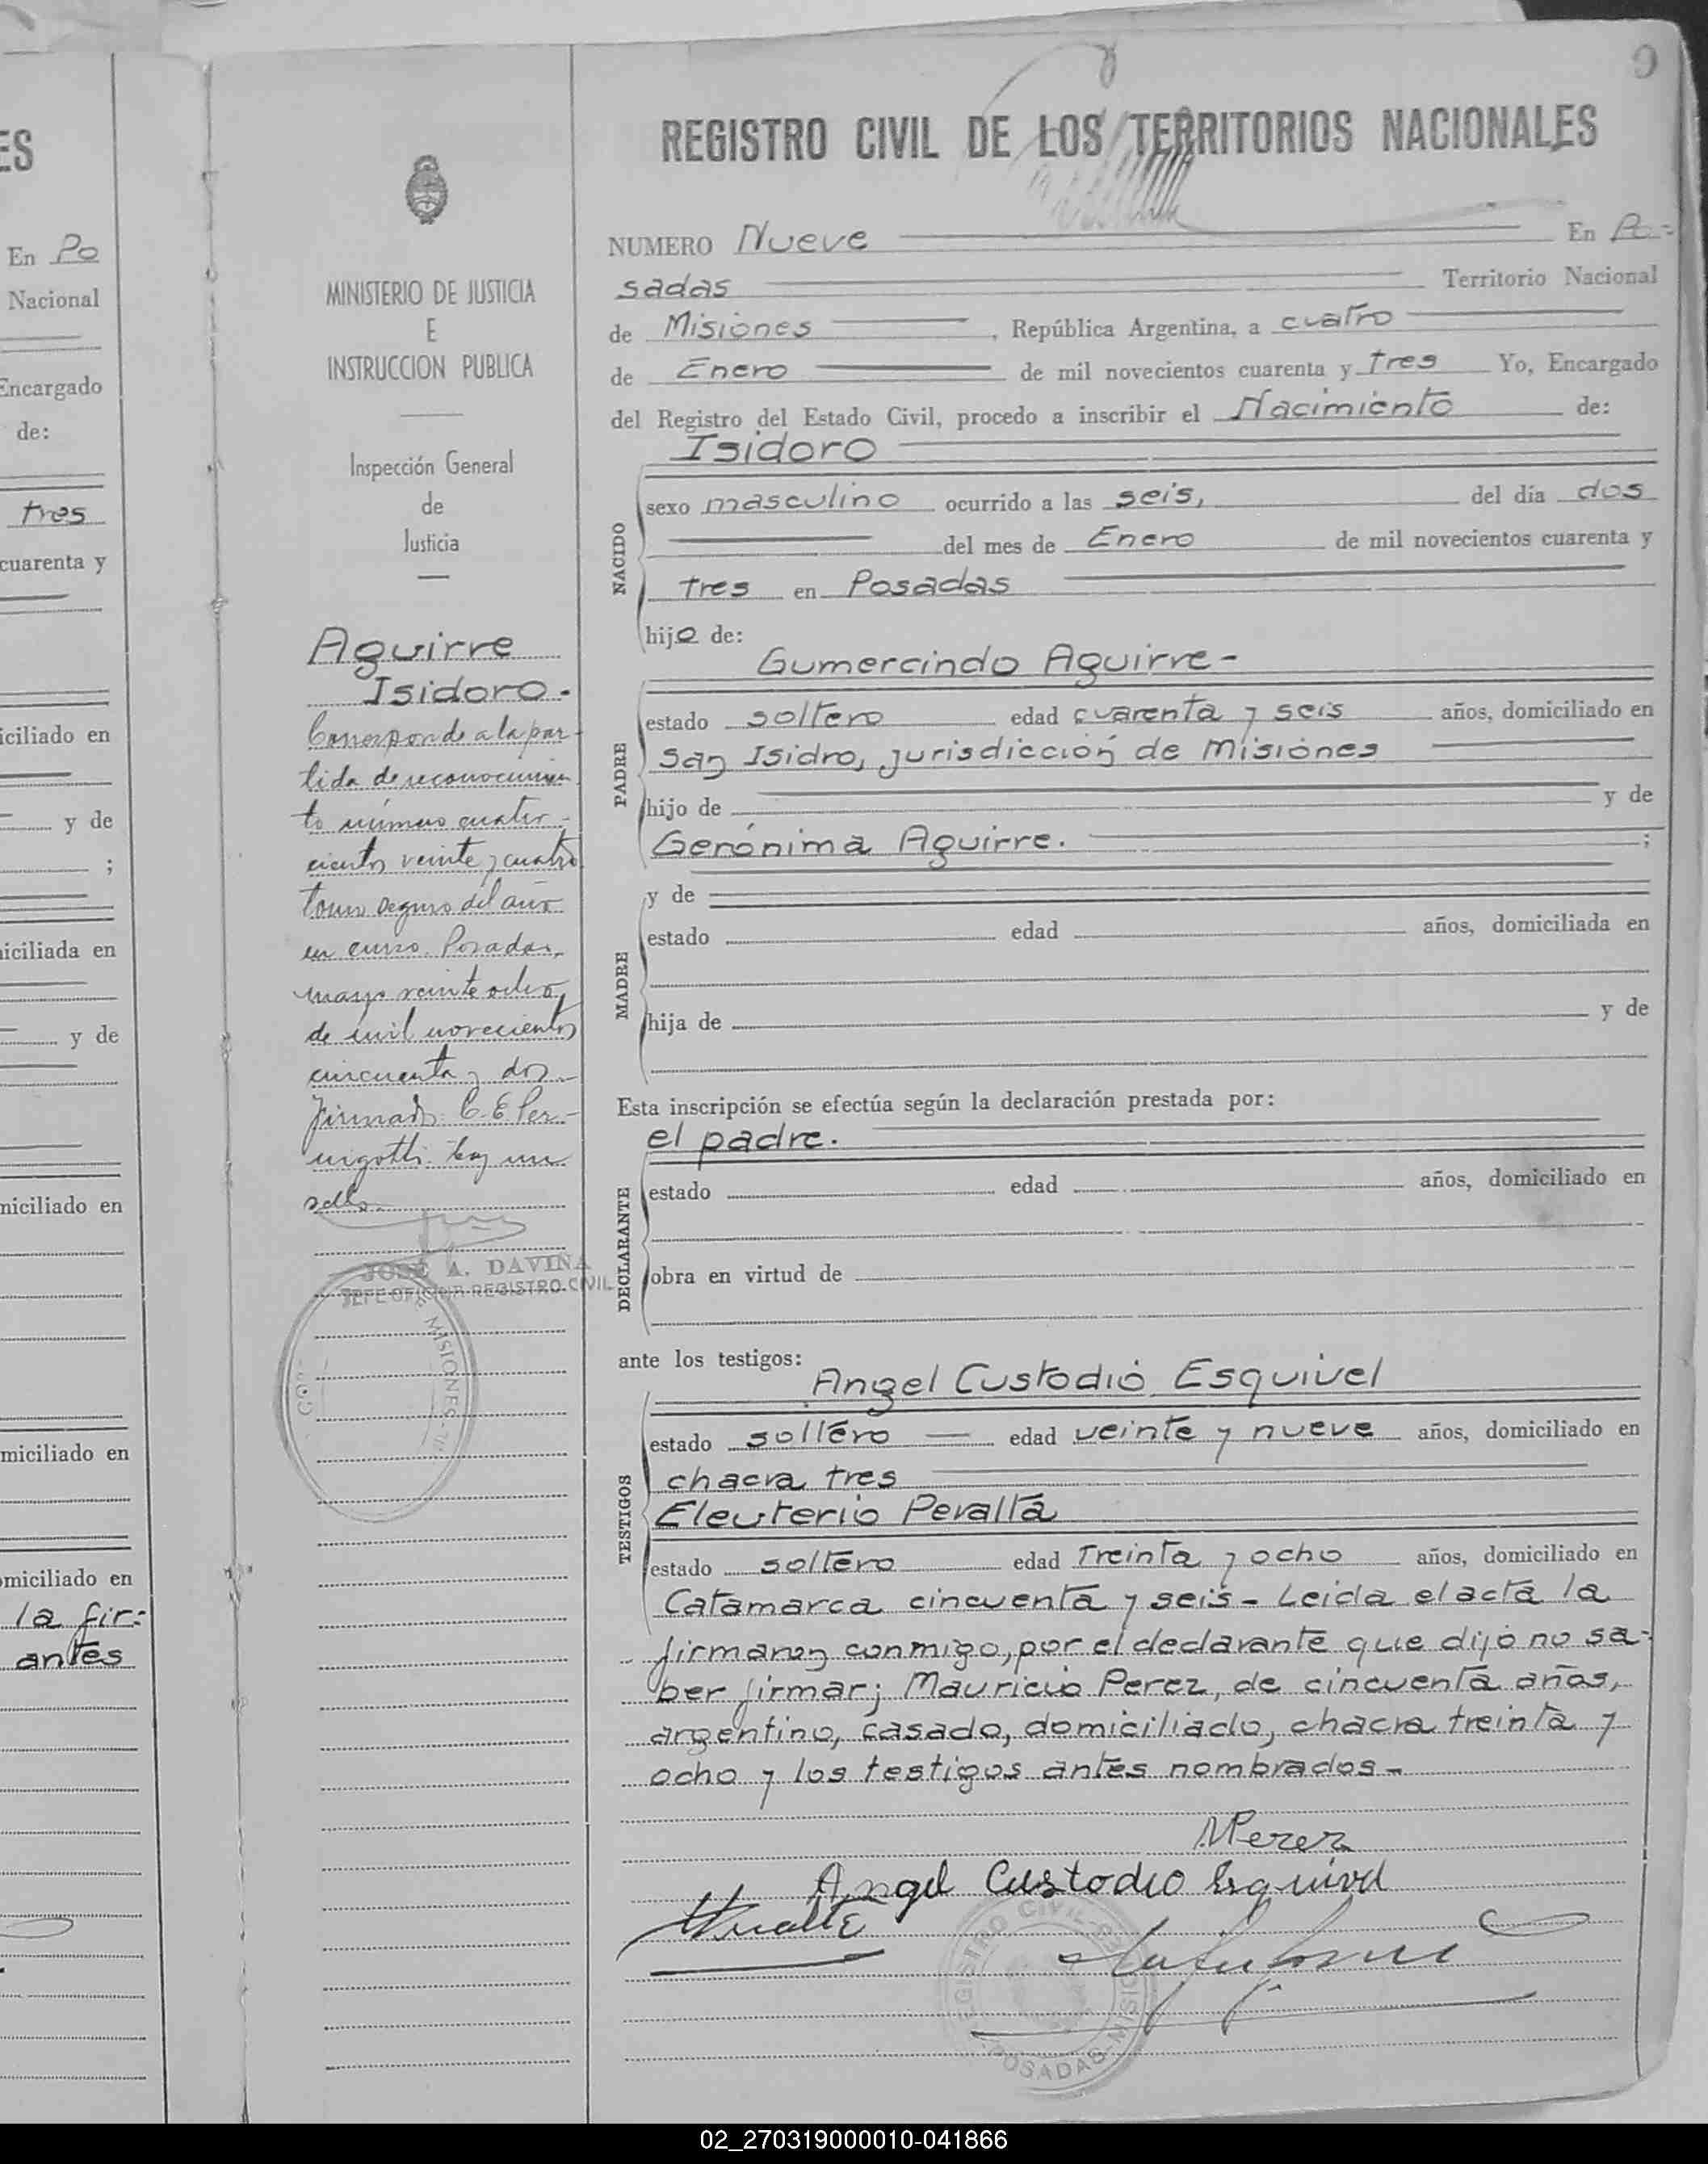 ES
En Po
Nacional
Encargado
de:
tres
cuarenta y
iciliado en
y de
;
niciliada en
y de
niciliado en
miciliado en
omiciliado en
la fir=
antes
MINISTERIO DE JUSTICIA
E
INSTRUCCION PUBLICA
Inspección General
de
Justicia
Aguirre
Isidoro.
Corresponde a la par-
tida de reconocimien
to número cuatro-
cientos veinte y cuatro
tomo segundo del año
en curso. Posadas,
mayo veinte ocho,
de mil novecientos
cincuenta y dos.
Firmado: C. E. Per-
nigotti. hay un
sello.
JOSÉ A. DAVIÑA
JEFE OFICINA REGISTRO CIVIL
MISIONES
9
REGISTRO CIVIL DE LOS TERRITORIOS NACIONALES
NUMERO Nueve En Po=
sadas Territorio Nacional
de Misiones, República Argentina, a cuatro
de Enero de mil novecientos cuarenta y tres Yo, Encargado
del Registro del Estado Civil, procedo a inscribir el Nacimiento de:
Isidoro
NACIDO
sexo masculino ocurrido a las seis, del día dos
del mes de Enero de mil novecientos cuarenta y
tres en Posadas
hijo de:
Gumercindo Aguirre-
PADRE
estado soltero edad cuarenta y seis años, domiciliado en
San Isidro, jurisdicción de Misiones
hijo de y de
Gerónima Aguirre. ;
MADRE
y de
estado edad años, domiciliada en
hija de y de
Esta inscripción se efectúa según la declaración prestada por:
el padre.
DECLARANTE
estado edad años, domiciliado en
obra en virtud de
ante los testigos:
Angel Custodio Esquivel
TESTIGOS
estado soltero edad veinte y nueve años, domiciliado en
chacra tres
Eleuterio Peralta
estado soltero edad treinta y ocho años, domiciliado en
Catamarca cincuenta y seis - Leida el acta la
firmaron conmigo, por el declarante que dijo no sa-
ber firmar; Mauricio Perez, de cincuenta años,
argentino, casado, domiciliado, chacra treinta y
ocho y los testigos antes nombrados-
MPerez
Angel Custodio Esquivel
REGISTRO CIVIL
POSADAS-MISIONES
02_270319000010-041866